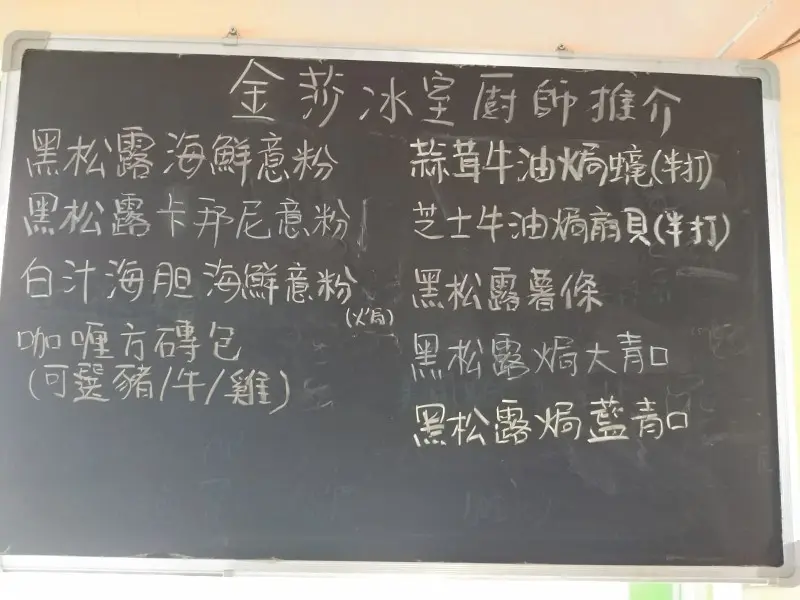 金莎冰室廚師推介
黑松露海鮮意粉
黑松露卡邦尼意粉
白汁海胆海鮮意粉
(火局)
咖喱方磚包
(可選豬/牛/雞)
蒜茸牛油焗蠔(半打)
芝士牛油焗扇貝(半打)
黑松露薯條
黑松露焗大青口
黑松露焗藍青口